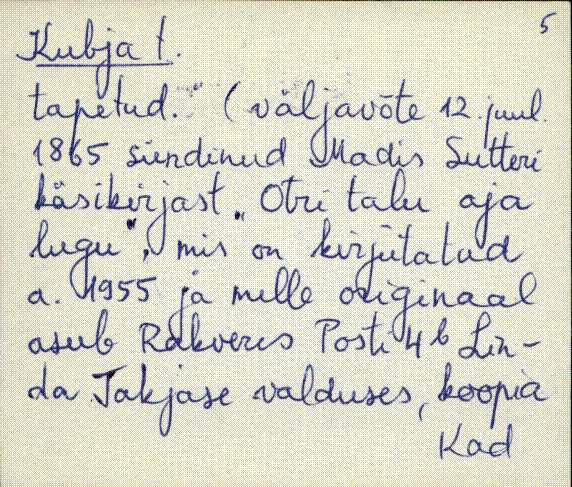 5
Kubja t.
tapetud." (väljavõte 12. juul.
1865 sündinud Madis Sutteri
käsikirjast „Otri talu aja
lugu", mis on kirjutatud
a. 1955 ja mille originaal
asub Rakveres Posti 4b Lin-
da Jakjase valduses, koopia
Kad